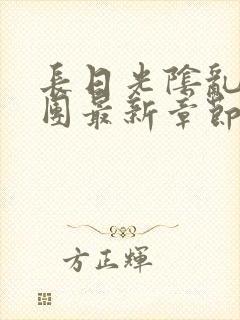 長日光陰亂
團最新章節
方正輝